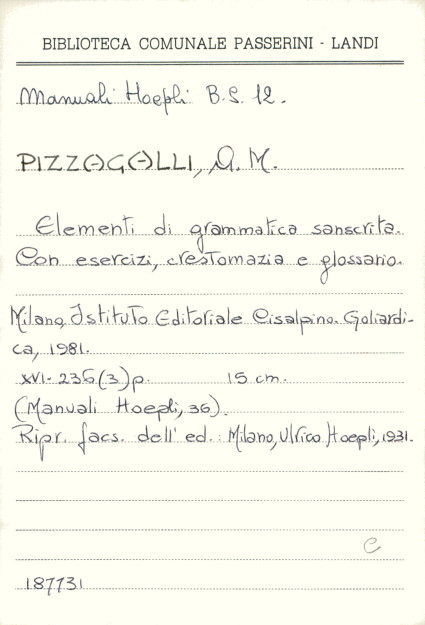 BIBLIOTECA COMUNALE PASSERINI - LANDI
Manuali Hoepli B.S. 12.
PIZZAGALLI, A. M.
Elementi di grammatica sanscrita.
Con esercizi, crestomazia e glossario.
Milano, Istituto Editoriale Cisalpino. Goliardi-
ca, 1981.
XVI-236(3)p. 15 cm.
(Manuali Hoepli, 36).
Ripr. facs. dell'ed.: Milano, Ulrico Hoepli, 1931.
e
187731